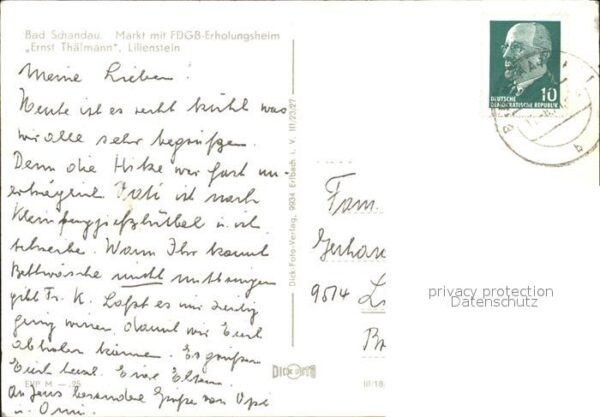 Bad Schandau. Markt mit FDGB-Erholungsheim
„Ernst Thälmann", Lilienstein
Meine Lieben!
Heute ist es recht kühl was
wir alle sehr begrüßen.
Denn die Hitze war fast un-
erträglich. Vati ist nach
u. ich
schreibe. Wann Ihr kommt
Bettwäsche nicht mitbringen
gibt Fr. K. Laßt es mir zeitig
genug wissen, damit wir Euch
abholen können. Es grüßen
Euch herzl. Eure Eltern.
An Jens besondere Grüße von Opi
u. Omi.
EVP M —.25
Dick-Foto-Verlag, 9934 Erlbach i. V. III/23/27
DICK FOTO
III/18/
DEUTSCHE
DEMOKRATISCHE REPUBLIK
10
BAD SCHANDAU
b
Fam.
Gerhard
9514
privacy protection
Datenschutz